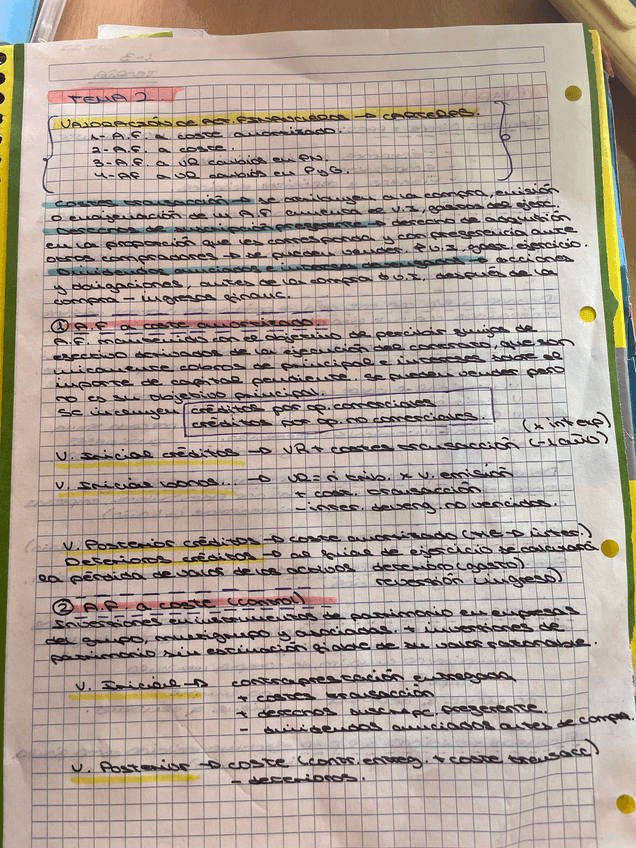 TEMA 2
VALORACIÓN DE ACT FINANCIEROS → CARTERAS.
1- A.F. a coste amortizado.
2- A.F. a coste.
3- A.F. a VR cambios en PN.
4- AF a VR cambios en PyG.
costes transacción → se atribuyen a la compra, emisión
o enajenación de un A.F. aumenta el V.I, gastos del ejerc.
Derechos de suscripción preferente → derecho de adquisición
en la proporción que les corresponda y con preferencia ante
otros compradores → se pueden vender ↓ V.I, gasto ejercicio.
Dividendos anunciados e intereses devengados → acciones
y obligaciones, antes de la compra ↓ V.I, después de la
compra - ingresos financ.
① A.F. a coste amortizado.
A.F. mantenido con el objetivo de percibir flujos de
efectivo derivados de la ejecución del contrato, que son
únicamente cobros de principal e intereses sobre el
importe de capital pendiente. se pueden vender pero
no es su objetivo principal.
Se incluyen créditos por op. comerciales
créditos por op. no comerciales.
(x int exp)
V. Inicial créditos → VR + costes transacción (-1 año)
V. Inicial bonos.. → VR = n títulos. x V. emisión
+ cost. transacción
- inter. deveng. no vencidos.
V. Posterior créditos → coste amortizado (TIE → inter.)
Deterioros créditos → al final de ejercicio se calculará
la pérdida de valor de los activos deterioro (gasto)
reversión (ingreso)
② A.F. a coste (control)
Inversiones en instrumentos de patrimonio en empresas
del grupo, multigrupo y asociadas. + inversiones de
patrimonio sin estimación fiable de su valor razonable.
V. Inicial → contraprestación entregada
+ costes transacción
+ derechos suscripc preferente.
- dividendos anunciados antes de compra.
V. Posterior → coste (contr. entreg. + coste transacc)
- deterioros.